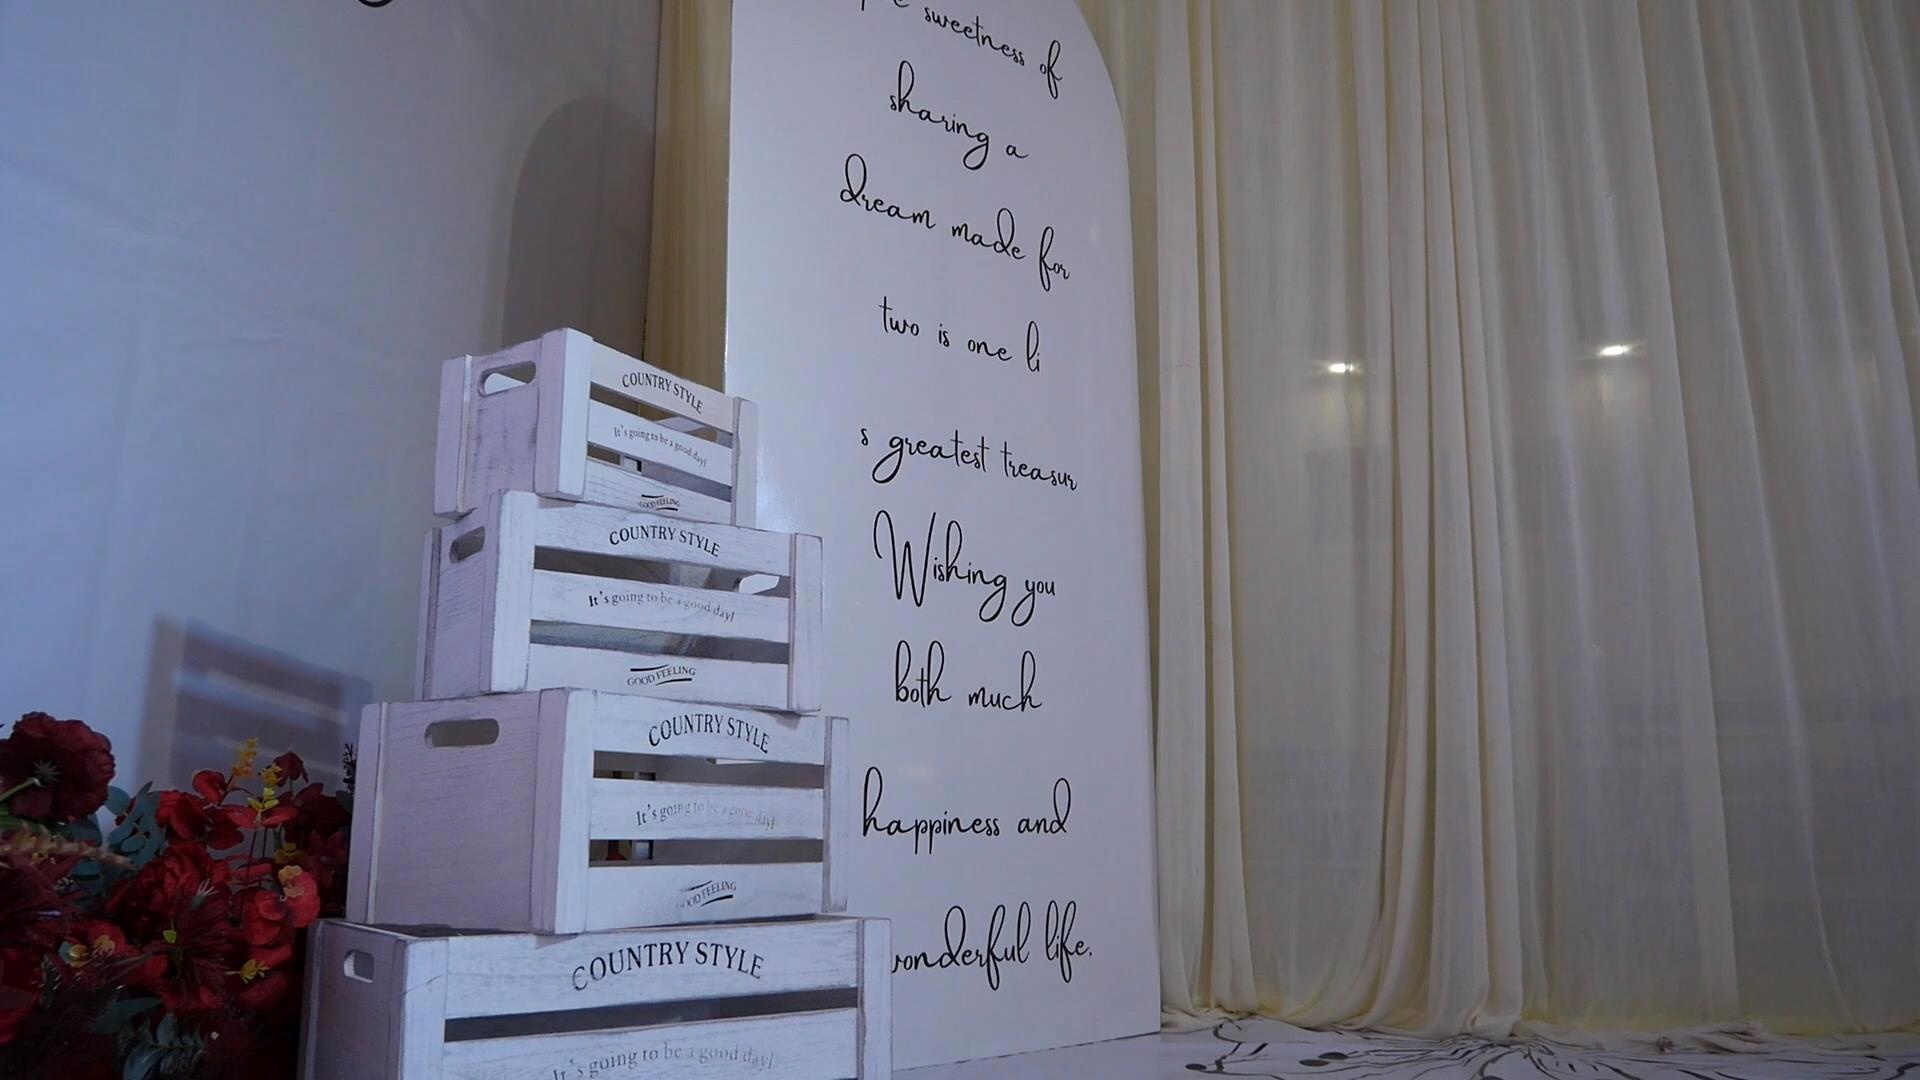 sweetness of
sharing a
dream made for
two is one li
s greatest treasur
Wishing you
both much
happiness and
wonderful life.
COUNTRY STYLE
It's going to be a good day!
GOOD FEELING
COUNTRY STYLE
It's going to be a good day!
GOOD FEELING
COUNTRY STYLE
It's going to be a good day!
GOOD FEELING
COUNTRY STYLE
It's going to be a good day!